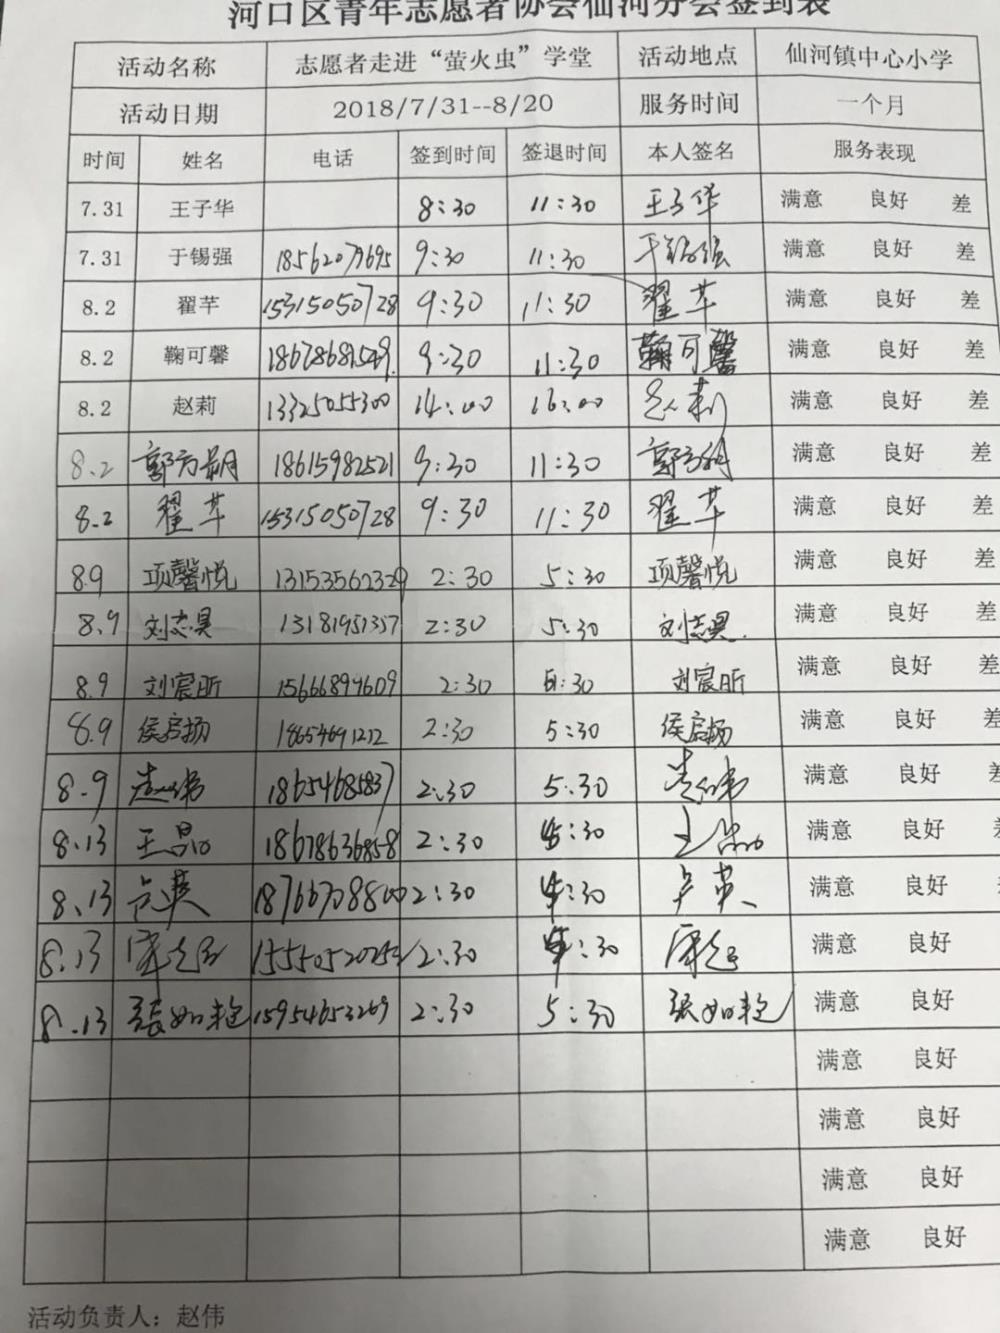 河口区青年志愿者协会仙河分会签到表
活动名称 志愿者走进“萤火虫”学堂 活动地点 仙河镇中心小学
活动日期 2018/7/31--8/20 服务时间 一个月
时间 姓名 电话 签到时间 签退时间 本人签名 服务表现
7.31 王子华 8:30 11:30 王子华 满意 良好 差
7.31 于锡强 18562079695 9:30 11:30 于锡强 满意 良好 差
8.2 翟芊 15315050728 9:30 11:30 翟芊 满意 良好 差
8.2 鞠可馨 18678681549 9:30 11:30 鞠可馨 满意 良好 差
8.2 赵莉 13325055300 14:00 16:00 赵莉 满意 良好 差
8.2 18615982521 9:30 11:30 满意 良好 差
8.2 翟芊 15315050728 9:30 11:30 翟芊 满意 良好 差
8.9 项馨悦 13153562329 2:30 5:30 项馨悦 满意 良好 差
8.9 刘志昊 13181951357 2:30 5:30 刘志昊 满意 良好 差
8.9 刘宸昕 15666899609 2:30 5:30 刘宸昕 满意 良好 差
8.9 侯启扬 18654691212 2:30 5:30 侯启扬 满意 良好 差
8.9 赵伟 18654685837 2:30 5:30 赵伟 满意 良好 差
8.13 王晶 18678636858 2:30 :30 王晶 满意 良好
8.13 卢英 2:30 :30 卢英 满意 良好
8.13 2:30 :30 满意 良好
8.13 张如艳 15954653269 2:30 5:30 张如艳 满意 良好
满意 良好
满意 良好
满意 良好
满意 良好
活动负责人：赵伟